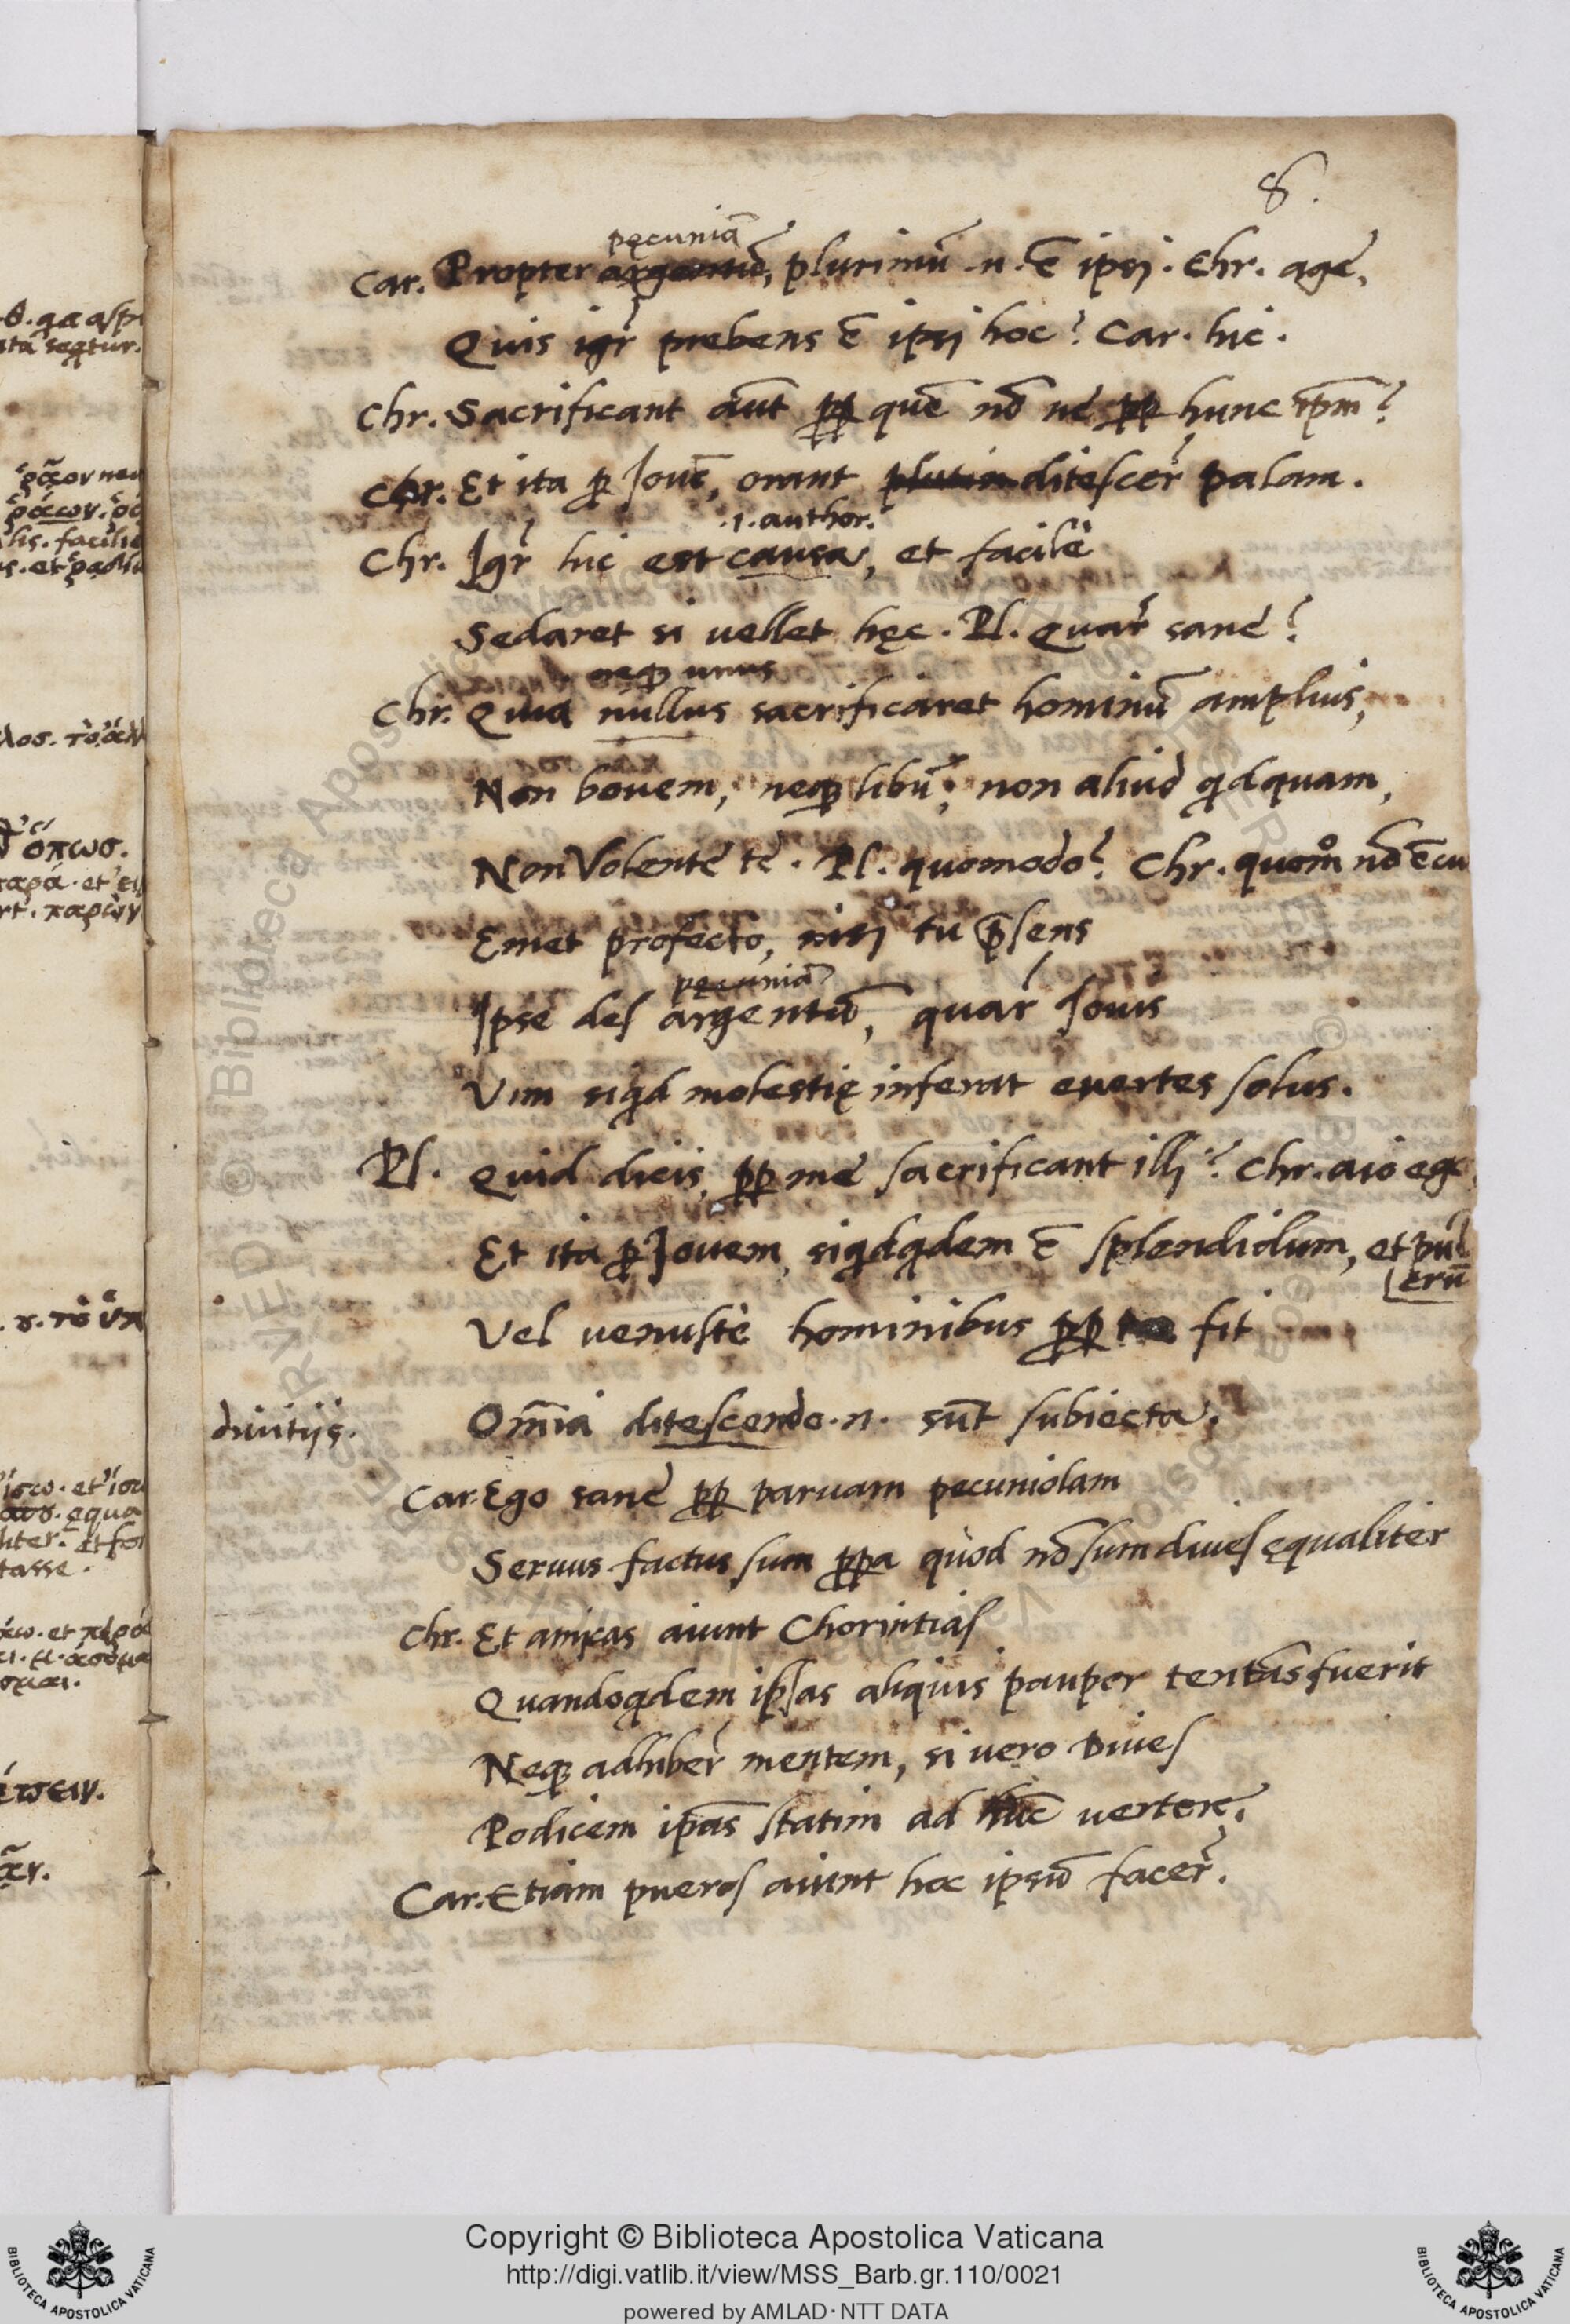 8.
pęcuniā
Car. Propter argentū, plurimū .n. ē ipsi. Chr. age,
Quis igr̄ prebens ē ipsi hoc? Car. hic.
Chr. Sacrificant aūt ꝓꝑ quē nō ne ꝓꝑ hunc ipm̄?
Chr. Et ita ꝑ Jouē, orant plutum ditescer̄ palam.
.i. author.
Chr. Igr̄ hic est causa, et facile
Sedaret si uellet hęc. Pl. Quar̄ sane?
neqꝫ unus
Chr. Quia nullus sacrificaret hominū amplius,
Non bouem, neqꝫ libū, non aliud qdquam,
Non Volente te. Pl. quomodo? Chr. quom̊ nō ē cu
Emet profecto, nisi tu p̄sens
pęcuniā
Ipse des argentū, quar̄ Jouis
Vim siqd molestię inferat euertes solus.
Pl. Quid dicis, ꝓꝑ me sacrificant illi? Chr. aio ego
Et ita ꝑ Jouem, siqdqdem ē splendidum, et pul
crū
Vel uenuste hominibus ꝓꝑ te fit
diuitijs.
Om̄ia ditescendo .n. sūt subiecta.
Car. Ego sane ꝓꝑ paruam pecuniolam
Seruus factus sum ꝓꝑa quòd nō sum diues ęqualiter
Chr. Et amicas aiunt Chorintias
Quandoqdem ipsas aliquis pauper tentās fuerit
Neqꝫ adhiber̄ mentem, si uero Diues
Podicem ipās statim ad hūc uertere,
Car. Etiam pueros aiunt hoc ipsū facer̄.
θ. qa aspi
ita seqtur.
ῥᾴων. ῥᾴ
lis. facili
λοσ. τὸ ἀλ
ὅπωσ.
παρά. et εἰ
παρὼν
ἴσω. et ἴσω
equa
liter. et for
tasse.
Copyright © Biblioteca Apostolica Vaticana
http://digi.vatlib.it/view/MSS_Barb.gr.110/0021
powered by AMLAD·NTT DATA
BIBLIOTECA APOSTOLICA VATICANA
BIBLIOTECA APOSTOLICA VATICANA